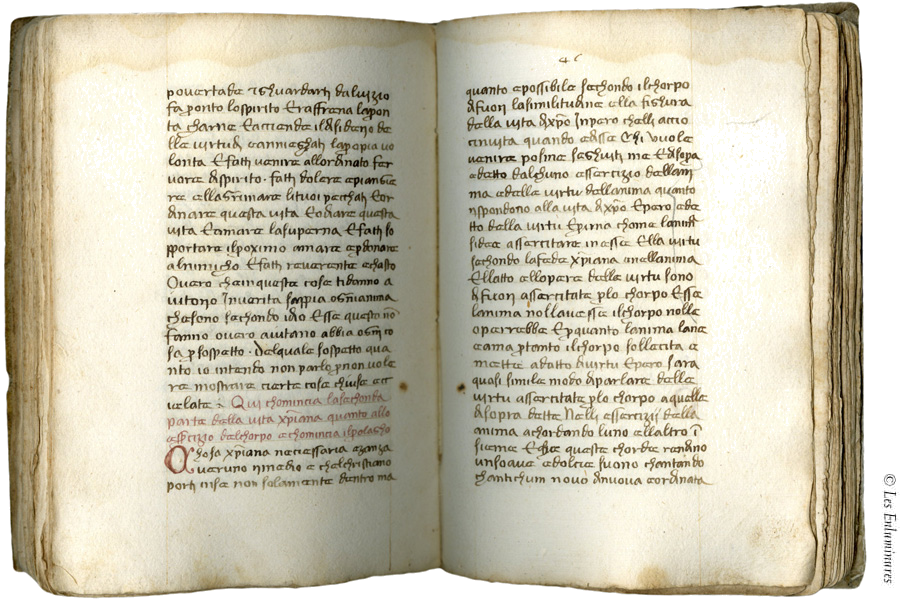 povertade et sghuardarti dal vizio
fa pronto lo spirito E raffrena la pon
ta charne E accende il disiderio de
lle virtu E annieghati la propia vo
lonta E fatti venire all ordinato fer
vore di spirito · fatti dolere e piangie
re e llagrimare li tuoi pecchati E or
dinare questa vita E odiare questa
vita E amare la superna E fatti so
pportare il poximo amare e perdonare
al nimicho E fatti reverente e chasto
Overo che in queste cose ti danno a
iutorio In verita sappia ogni anima
che seno sechondo idio E sse questo no
fanno overo aiutano abbia ogni co
sa per sospetto · Del quale sospetto qua
nto io intendo non parlo per non vole
re mostrare cierte cose chiuse e
velate · Qui chomincia la sechonda
parte della vita xpiana quanto allo
esercizio del chorpo e chomincia il prolagho
Chosa xpiana necessaria
veruno rimedio e che l christiano
porti in se non solamente dentro ma
46
quanto e possibile sechondo il chorpo
di fuori la similitudine e lla fighura
della vita di xpo Inpero che lli accio
cinvita quando disse Chi vuole
venire po me seghuiti me E di sopra
e detto dalchuno essercizio dell ani
ma e delle virtu dell anima quanto
rispondono alla vita di xpo E pero e de
tto della virtu E prima chome l anima
si dee assercitare in essa E lla virtu
sechondo la fede xpiana e nell anima
E ll atto e ll opere delle virtu sono
di fuori assercitate per lo chorpo E sse
l anima no ll avesse il chorpo no lle
operrebbe E per quanto l anima l a
e ama per tanto il chorpo sollecita e
mette adatto di virtu E pero sara
quasi simile modo di parlare delle
virtu assercitate per lo chorpo a quelle
di sopra dette Nelli essercizii della
anima achordando l uno e ll altro i
sieme E sse queste chorde rendano
un soave e dolcie suono chantando
chantichum novo di nuova e ordinata
© Les Enluminures